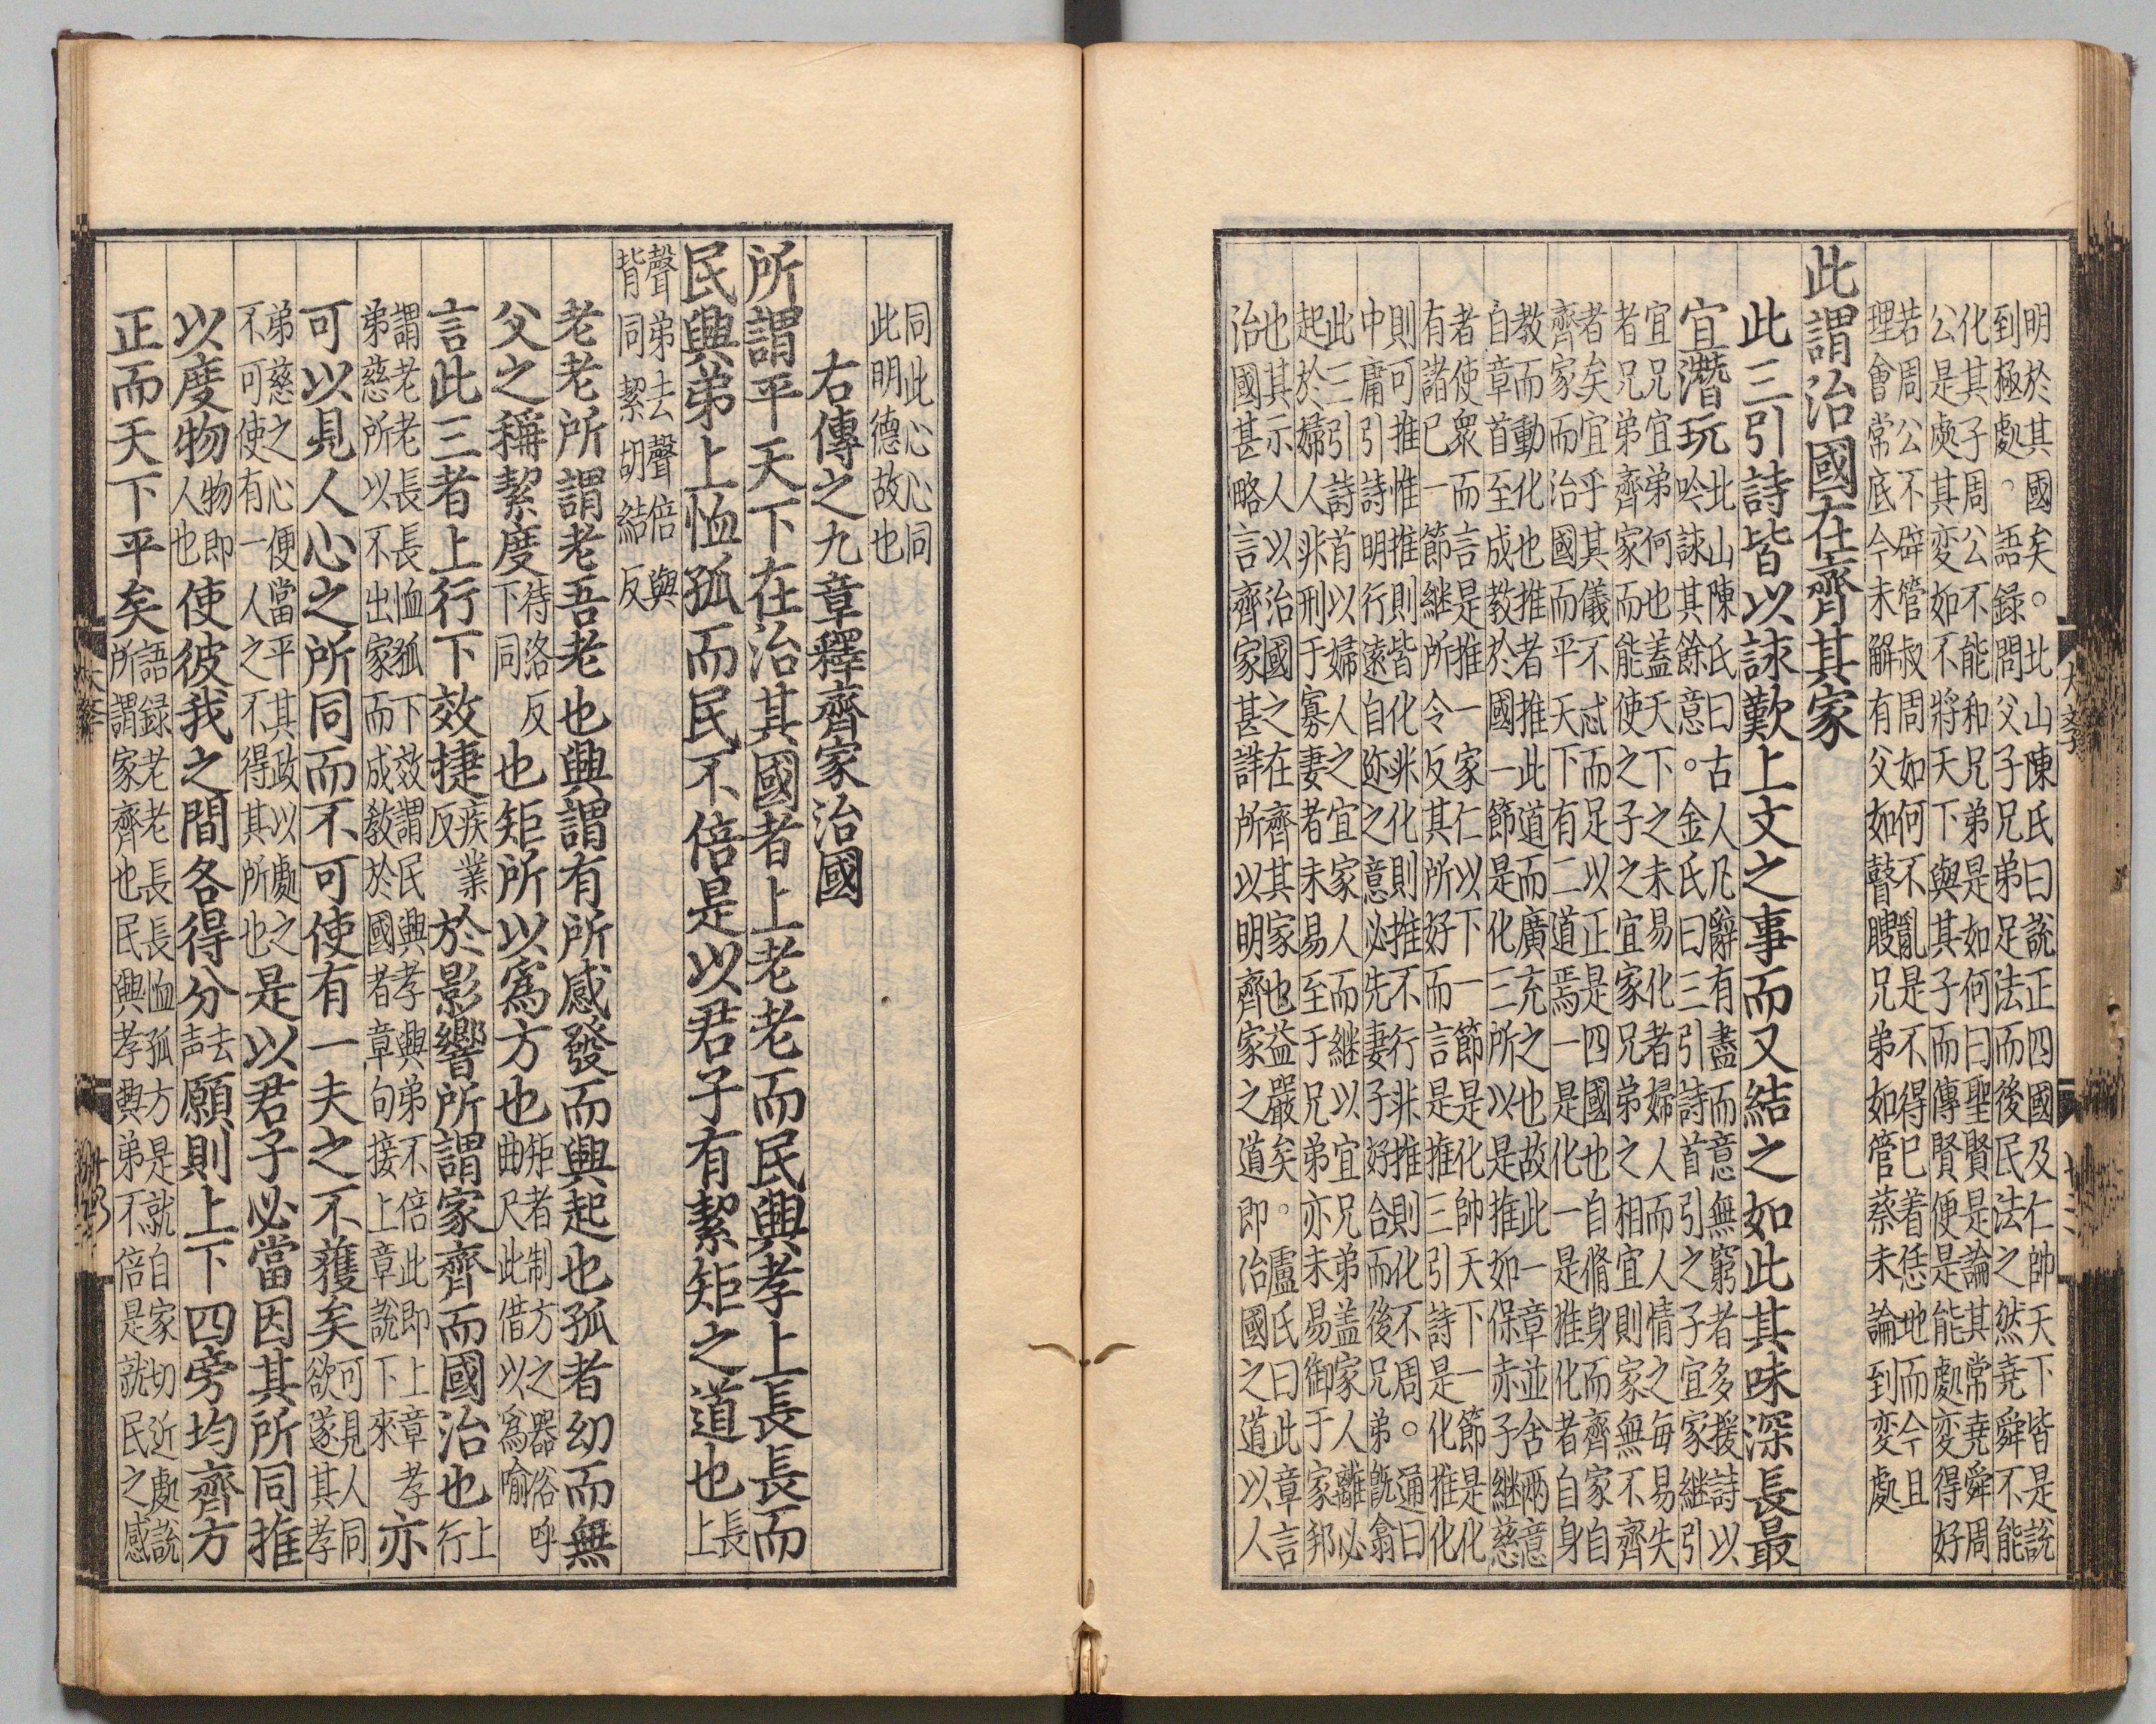 明於其國矣。北山陳氏曰說正四國及仁帥天下皆是說
到極處。語録問父子兄弟足法而後民法之然堯舜不能
化其子周公不能和兄弟是如何曰聖賢是論其常堯舜周
公是處其変如不將天下與其子而傳賢便是能處変得好
若周公不辟管叔周如何不亂是不得已着恁地而今且
理會常底今未解有父如瞽瞍兄弟如管蔡未論到変處
此謂治國在齊其家
此三引詩皆以詠歎上文之事而又結之如此其味深長最
宜潛玩
北山陳氏曰古人凡辭有盡而意無窮者多援詩以
吟詠其餘意。金氏曰三引詩首引之子宜家繼引
宜兄宜弟何也蓋天下之未易化者婦人而人情之毎易失
者兄弟齊家而能使之子之宜家兄弟之相宜則家無不齊
者矣宜乎其儀不忒而足以正是四國也自脩身而齊家自
齊家而治國而平天下有二道焉一是化一是推化者自身
教而動化也推者推此道而廣充之也故此一章並舍兩意
自章首至成教於國一節是化三所以是推如保赤子繼慈
者使衆而言是推一家仁以下一節是化帥天下一節是化
有諸已一節継所令反其所好而言是推三引詩是化推化
則可推惟推則皆化非化則推不行非推則化不周。通曰
中庸引詩明行遠自迩之意必先妻子好合而後兄弟旣翕
此三引詩首以婦人之宜家人而継以宜兄弟盖家人離必
起於婦人非刑于寡妻者未易至于兄弟亦未易御于家邦
也其示人以治國之在齊其家也益嚴矣。盧氏曰此章言
治國甚略言齊家甚詳所以明齊家之道即治國之道以人
同此心心同
此明德故也
右傳之九章釋齊家治國
所謂平天下在治其國者上老老而民興孝上長長而
民興弟上恤孤而民不倍是以君子有絜矩之道也
長上
聲弟去聲倍與
背同絜胡結反
老老所謂老吾老也興謂有所感發而興起也孤者幼而無
父之稱絜度
待洛反
下同
也矩所以爲方也
矩者制方之器俗呼
曲尺此借以爲喻
言此三者上行下效捷
疾業
反
於影響所謂家齊而國治也
上行
謂老老長長恤狐下效謂民興孝興弟不倍此即上章孝
弟慈所以不出家而成敎於國者章句接上章說下來
亦
可以見人心之所同而不可使有一夫之不獲矣
可見人同
欲遂其孝
弟慈之心便當平其政以處之
不可使有一人之不得其所也
是以君子必當因其所同推
以度物
物即
人也
使彼我之間各得分
去
声
願則上下四旁均齊方
正而天下平矣
語録老老長長恤孤方是就自家切近處說
所謂家齊也民興孝興弟不倍是就民之感